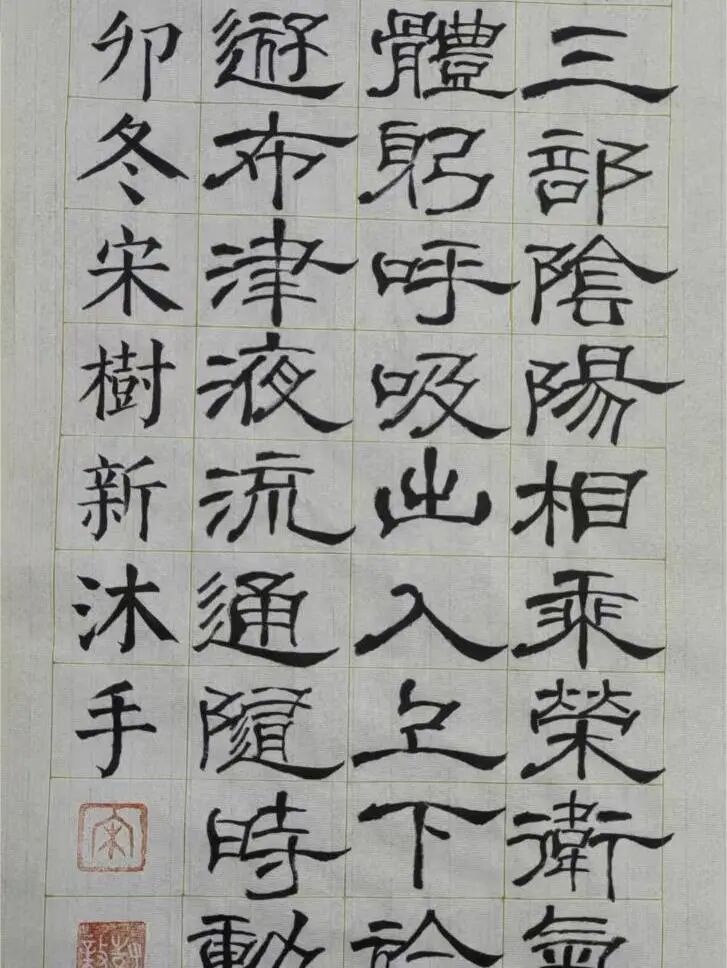 三部陰陽相乘榮衛氣
體躬呼吸出入上下於
遊布津液流通隨時動
卯冬宋樹新沐手
宋